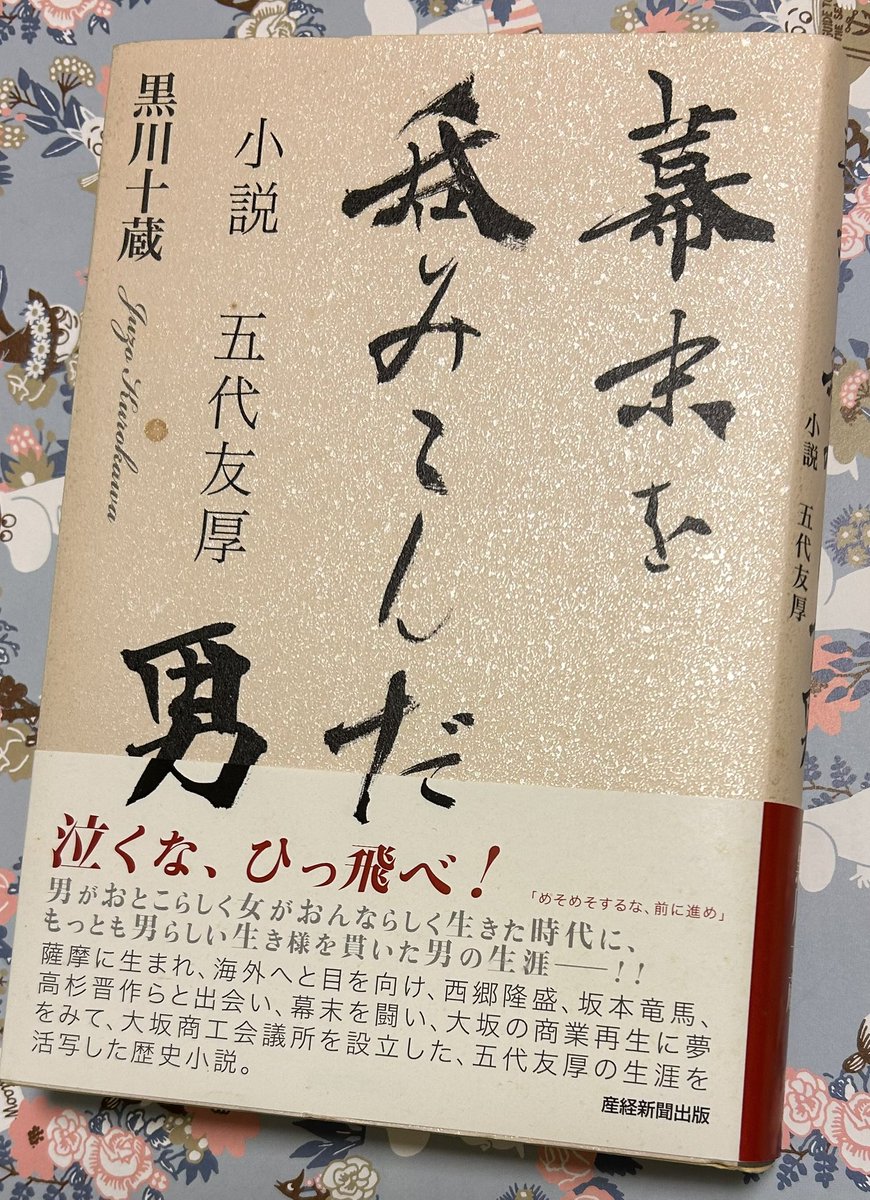 幕末を
呑みこんだ
男
小説 五代友厚
黒川十蔵
Juzo Kurokawa
小説 五代友厚
泣くな、ひっ飛べ!
「めそめそするな、前に進め」
男がおとこらしく女がおんならしく生きた時代に、
もっとも男らしい生き様を貫いた男の生涯――!!
薩摩に生まれ、海外へと目を向け、西郷隆盛、坂本竜馬、
高杉晋作らと出会い、幕末を闘い、大坂の商業再生に夢
をみて、大坂商工会議所を設立した、五代友厚の生涯を
活写した歴史小説。
産経新聞出版